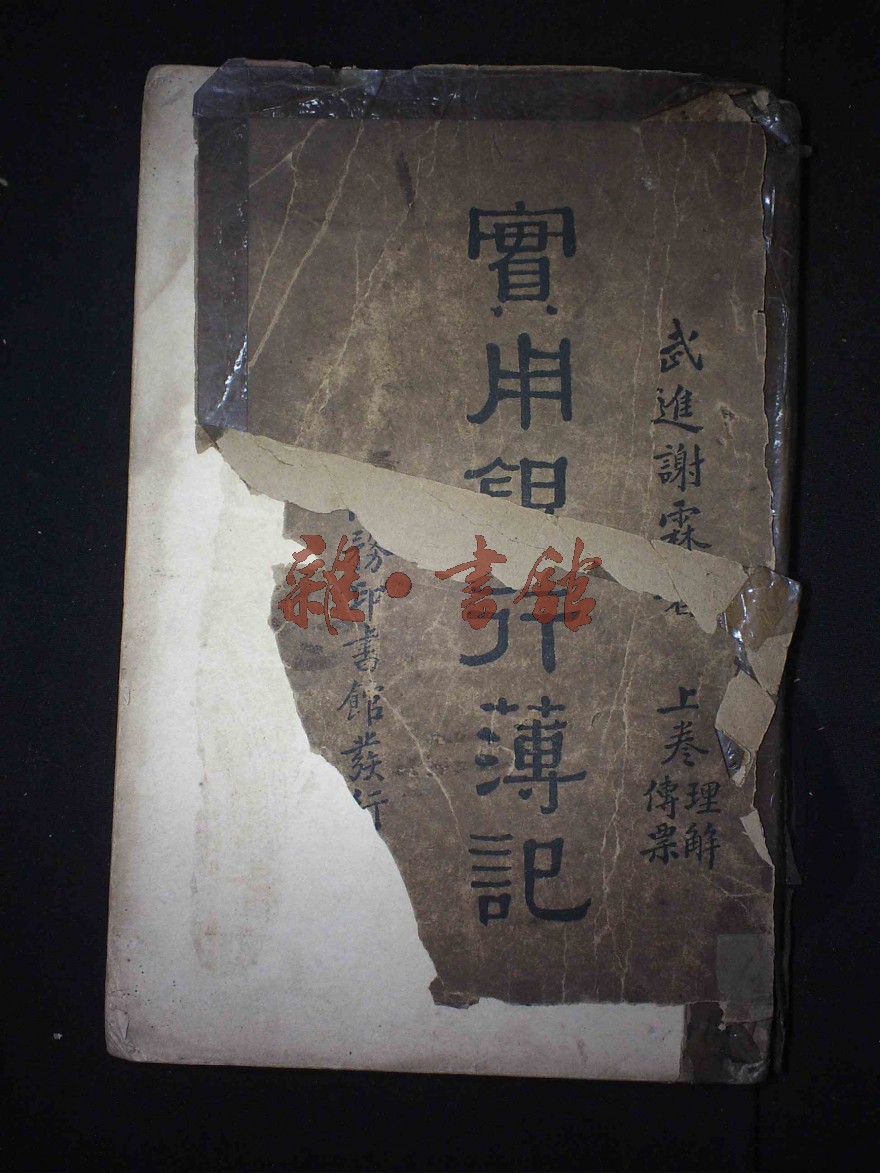 武進謝霖著
上卷
理解
傳票
實用銀行薄記
務印書館發行
雜·書館